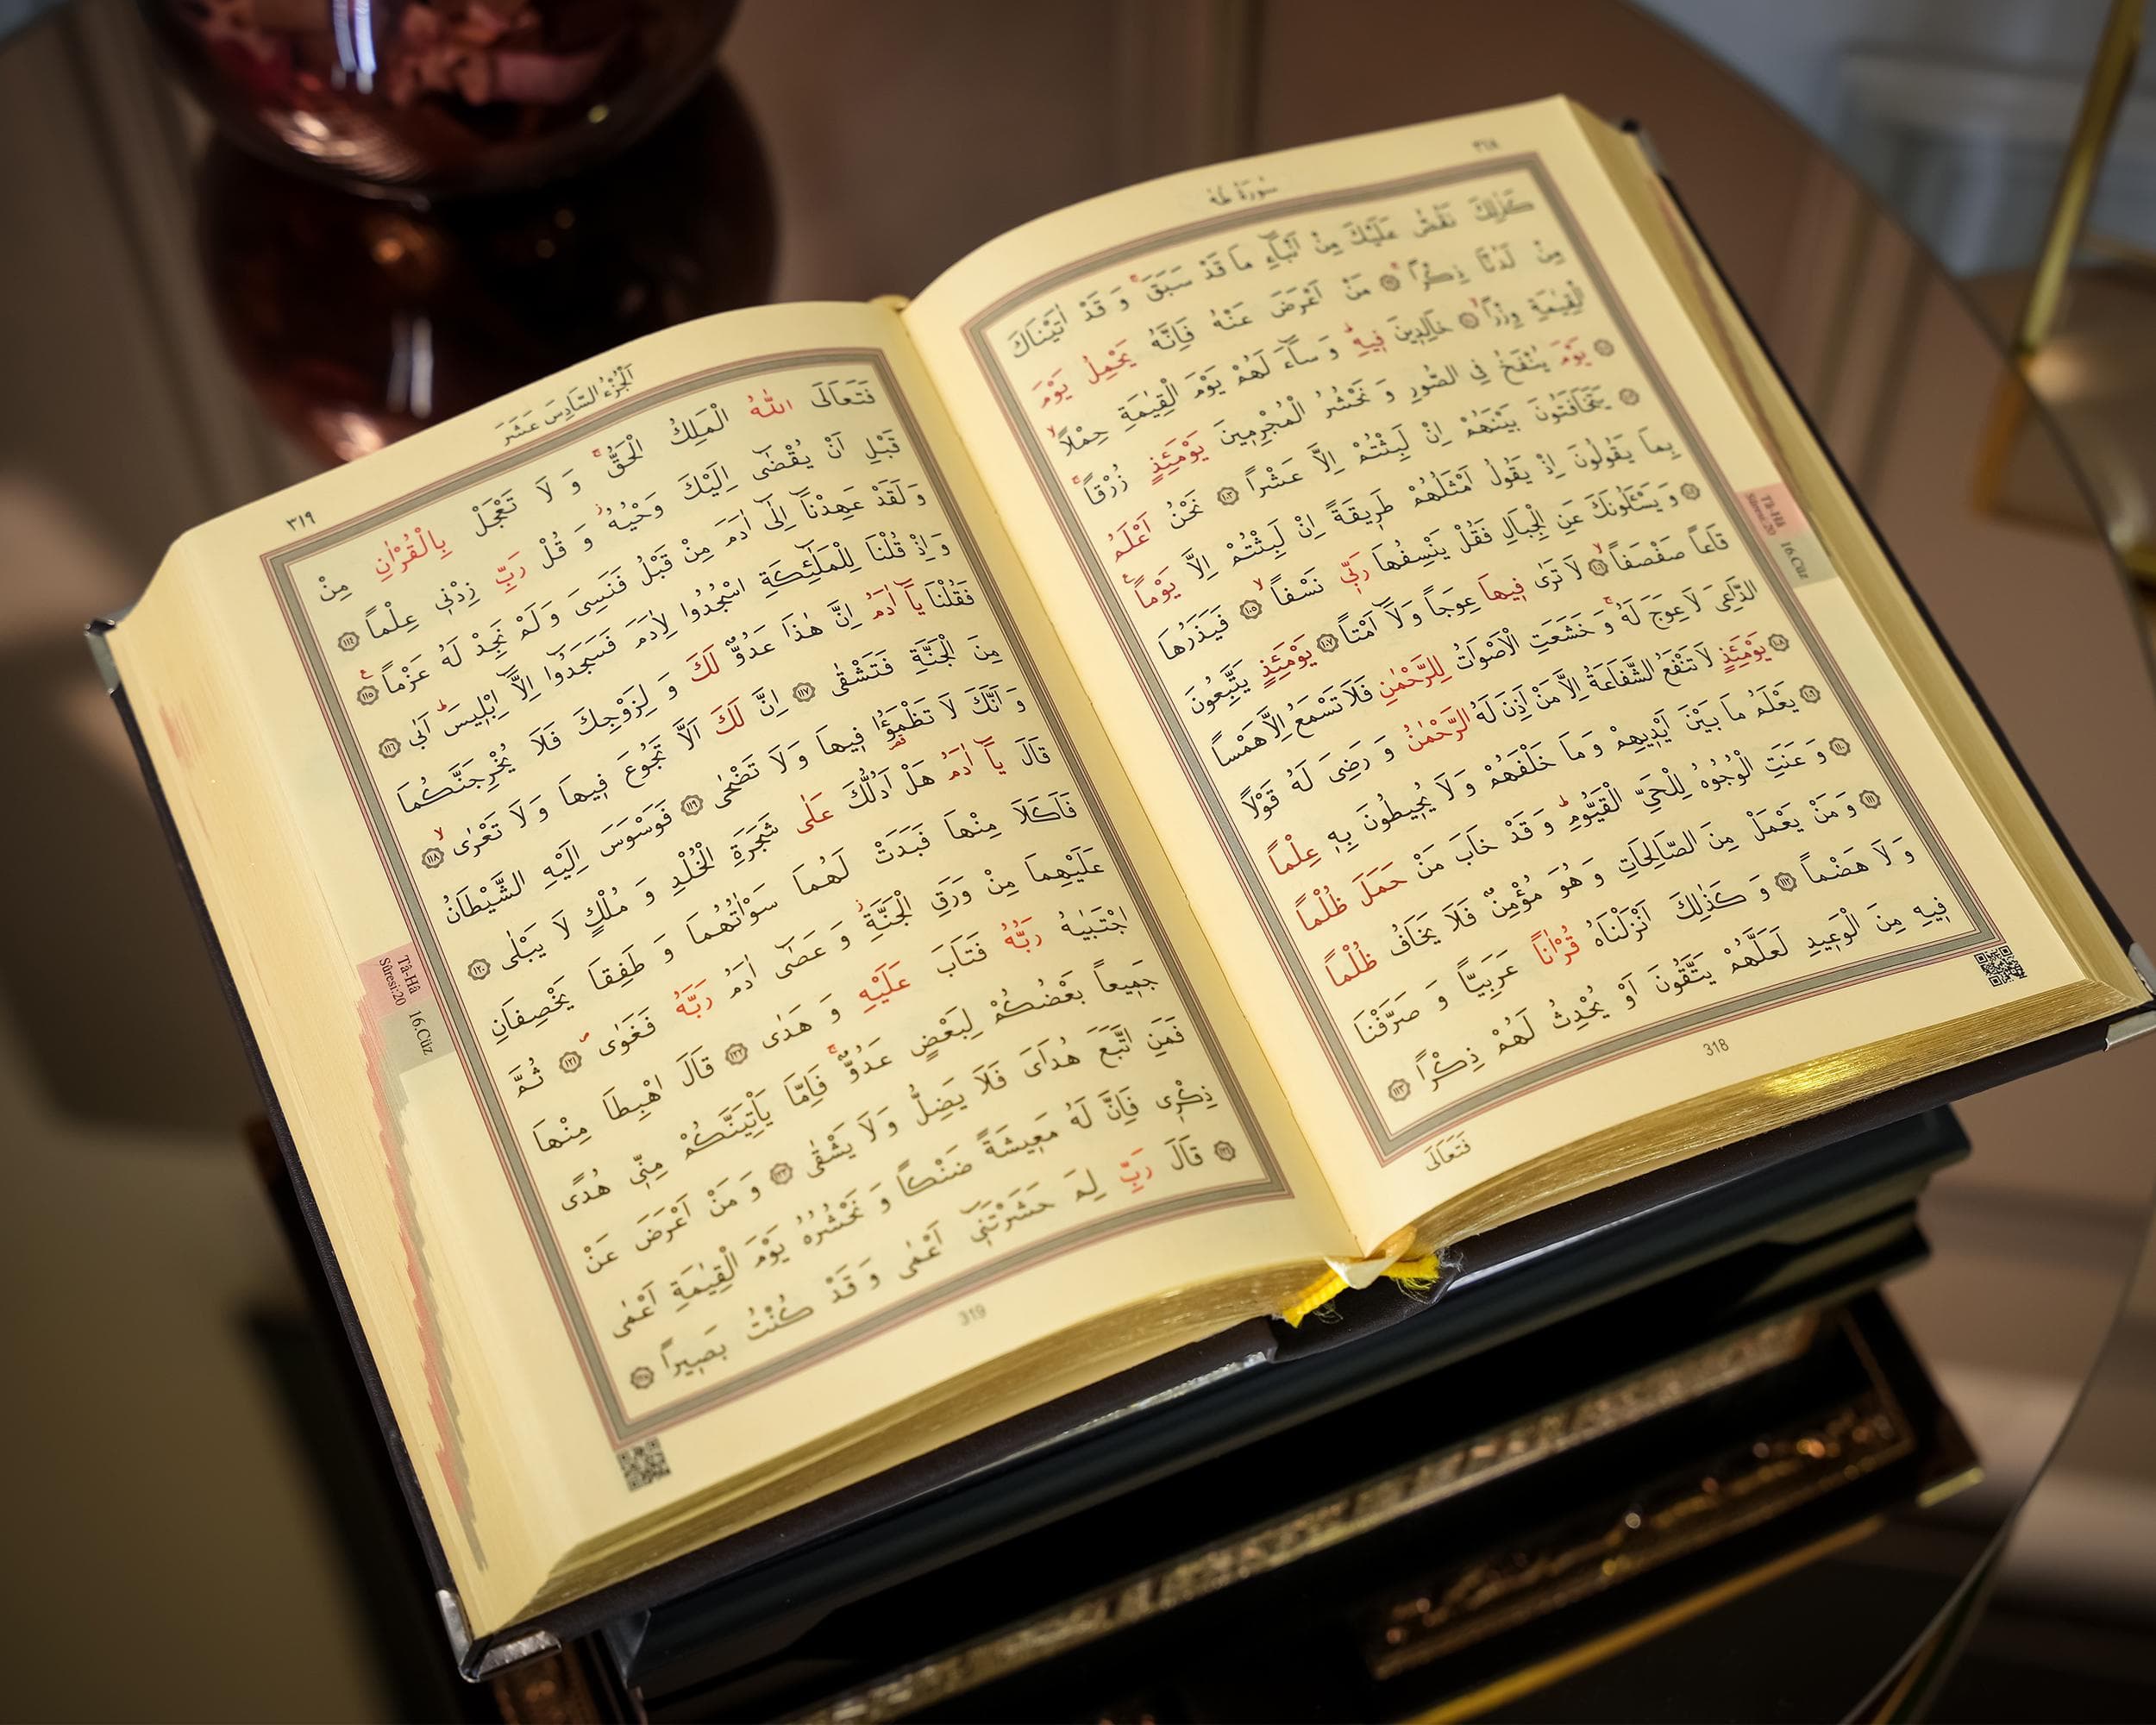 ٣١٨
سُورَةُ طٰهٰ
كَذٰلِكَ نَقُصُّ عَلَيْكَ مِنْ اَنْبَٓاءِ مَا قَدْ سَبَقَۚ وَ قَدْ اٰتَيْنَاكَ
مِنْ لَدُنَّا ذِكْراًۚ ۝ مَنْ اَعْرَضَ عَنْهُ فَاِنَّهُ يَحْمِلُ يَوْمَ
الْقِيٰمَةِ وِزْراًۙ ۝ خَالِدٖينَ فٖيهِۜ وَ سَٓاءَ لَهُمْ يَوْمَ الْقِيٰمَةِ حِمْلاًۙ
۝ يَوْمَ يُنْفَخُ فِي الصُّورِ وَ نَحْشُرُ الْمُجْرِمٖينَ يَوْمَئِذٍ زُرْقاًۚ
۝ يَتَخَافَتُونَ بَيْنَهُمْ اِنْ لَبِثْتُمْ اِلَّا عَشْراً ۝١٠٣ نَحْنُ اَعْلَمُ
بِمَا يَقُولُونَ اِذْ يَقُولُ اَمْثَلُهُمْ طَرٖيقَةً اِنْ لَبِثْتُمْ اِلَّا يَوْماًۚ
۝ وَ يَسْـَٔلُونَكَ عَنِ الْجِبَالِ فَقُلْ يَنْسِفُهَا رَبّٖي نَسْفاًۙ ۝١٠٥ فَيَذَرُهَا
قَاعاً صَفْصَفاًۙ ۝١٠٦ لَا تَرٰى فٖيهَا عِوَجاً وَ لَٓا اَمْتاً ۝١٠٧ يَوْمَئِذٍ يَتَّبِعُونَ
الدَّاعِيَ لَا عِوَجَ لَهُۚ وَ خَشَعَتِ الْاَصْوَاتُ لِلرَّحْمٰنِ فَلَا تَسْمَعُ اِلَّا هَمْساً
۝١٠٨ يَوْمَئِذٍ لَا تَنْفَعُ الشَّفَاعَةُ اِلَّا مَنْ اَذِنَ لَهُ الرَّحْمٰنُ وَ رَضِيَ لَهُ قَوْلاً
۝١٠٩ يَعْلَمُ مَا بَيْنَ اَيْدٖيهِمْ وَ مَا خَلْفَهُمْ وَ لَا يُحٖيطُونَ بِهٖ عِلْماً
۝١١٠ وَ عَنَتِ الْوُجُوهُ لِلْحَيِّ الْقَيُّومِۜ وَ قَدْ خَابَ مَنْ حَمَلَ ظُلْماً
۝١١١ وَ مَنْ يَعْمَلْ مِنَ الصَّالِحَاتِ وَ هُوَ مُؤْمِنٌ فَلَا يَخَافُ ظُلْماً
وَ لَا هَضْماً ۝١١٢ وَ كَذٰلِكَ اَنْزَلْنَاهُ قُرْاٰناً عَرَبِيًّا وَ صَرَّفْنَا
فٖيهِ مِنَ الْوَعٖيدِ لَعَلَّهُمْ يَتَّقُونَ اَوْ يُحْدِثُ لَهُمْ ذِكْراً ۝١١٣
318
فَتَعَالَى
Tâ-Hâ
Sûresi:20
16.Cüz
٣١٩
اَلْجُزْءُ السَّادِسَ عَشَرَ
فَتَعَالَى اللّٰهُ الْمَلِكُ الْحَقُّۚ وَ لَا تَعْجَلْ بِالْقُرْاٰنِ مِنْ
قَبْلِ اَنْ يُقْضٰٓى اِلَيْكَ وَحْيُهُؗ وَ قُلْ رَبِّ زِدْنٖي عِلْماً ۝١١٤
وَ لَقَدْ عَهِدْنَٓا اِلٰٓى اٰدَمَ مِنْ قَبْلُ فَنَسِيَ وَ لَمْ نَجِدْ لَهُ عَزْماًࣖ ۝١١٥
وَ اِذْ قُلْنَا لِلْمَلٰٓئِكَةِ اسْجُدُوا لِاٰدَمَ فَسَجَدُٓوا اِلَّٓا اِبْلٖيسَۜ اَبٰى ۝١١٦
فَقُلْنَا يَٓا اٰدَمُ اِنَّ هٰذَا عَدُوٌّ لَكَ وَ لِزَوْجِكَ فَلَا يُخْرِجَنَّكُمَا
مِنَ الْجَنَّةِ فَتَشْقٰى ۝١١٧ اِنَّ لَكَ اَلَّا تَجُوعَ فٖيهَا وَ لَا تَعْرٰىۙ ۝١١٨
وَ اَنَّكَ لَا تَظْمَؤُ۬ا فٖيهَا وَ لَا تَضْحٰى ۝١١٩ فَوَسْوَسَ اِلَيْهِ الشَّيْطَانُ
قَالَ يَٓا اٰدَمُ هَلْ اَدُلُّكَ عَلٰى شَجَرَةِ الْخُلْدِ وَ مُلْكٍ لَا يَبْلٰى ۝١٢٠
فَاَكَلَا مِنْهَا فَبَدَتْ لَهُمَا سَوْاٰتُهُمَا وَ طَفِقَا يَخْصِفَانِ
عَلَيْهِمَا مِنْ وَرَقِ الْجَنَّةِؗ وَ عَصٰٓى اٰدَمُ رَبَّهُ فَغَوٰىۖ ۝١٢١ ثُمَّ
اجْتَبٰيهُ رَبُّهُ فَتَابَ عَلَيْهِ وَ هَدٰى ۝١٢٢ قَالَ اهْبِطَا مِنْهَا
جَمٖيعاً بَعْضُكُمْ لِبَعْضٍ عَدُوٌّۚ فَاِمَّا يَأْتِيَنَّكُمْ مِنّٖي هُدًى
فَمَنِ اتَّبَعَ هُدَايَ فَلَا يَضِلُّ وَ لَا يَشْقٰى ۝١٢٣ وَ مَنْ اَعْرَضَ عَنْ
ذِكْرٖي فَاِنَّ لَهُ مَعٖيشَةً ضَنْكاً وَ نَحْشُرُهُ يَوْمَ الْقِيٰمَةِ اَعْمٰى
۝١٢٤ قَالَ رَبِّ لِمَ حَشَرْتَنٖٓي اَعْمٰى وَ قَدْ كُنْتُ بَصٖيراً ۝١٢٥
319
Tâ-Hâ
Sûresi:20
16.Cüz